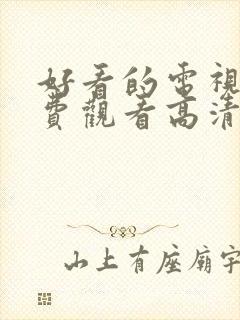 好看的電視
費觀看高清
山上有座廟宇